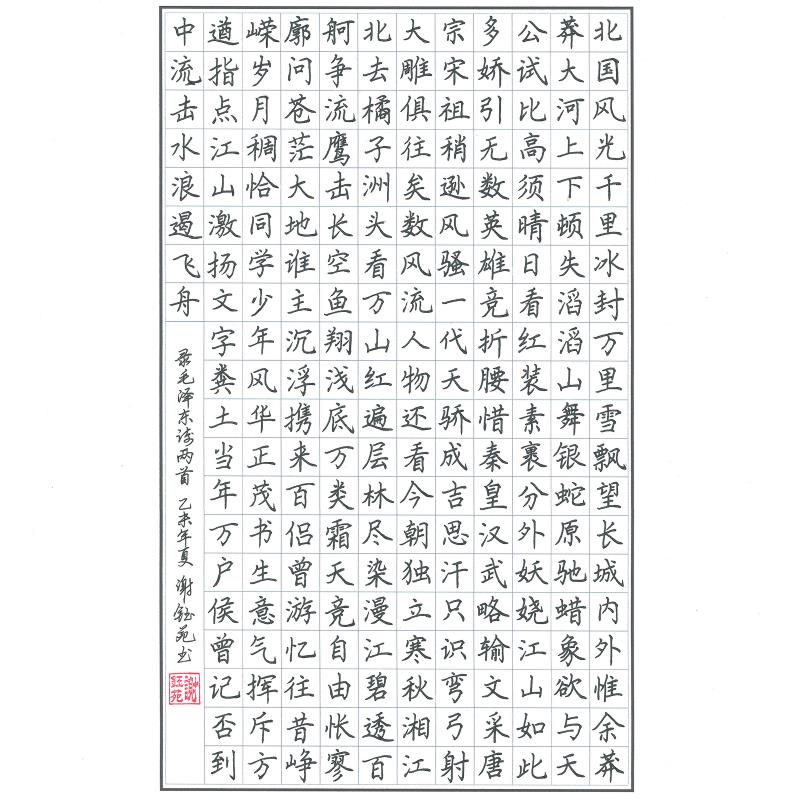 北国风光千里冰封万里雪飘望长城内外惟余莽
莽大河上下顿失滔滔山舞银蛇原驰蜡象欲与天
公试比高须晴日看红装素裹分外妖娆江山如此
多娇引无数英雄竞折腰惜秦皇汉武略输文采唐
宗宋祖稍逊风骚一代天骄成吉思汗只识弯弓射
大雕俱往矣数风流人物还看今朝独立寒秋湘江
北去橘子洲头看万山红遍层林尽染漫江碧透百
舸争流鹰击长空鱼翔浅底万类霜天竞自由怅寥
廓问苍茫大地谁主沉浮携来百侣曾游忆往昔峥
嵘岁月稠恰同学少年风华正茂书生意气挥斥方
遒指点江山激扬文字粪土当年万户侯曾记否到
中流击水浪遏飞舟
录毛泽东诗两首 乙未年夏 谢钰苑书
谢钰苑